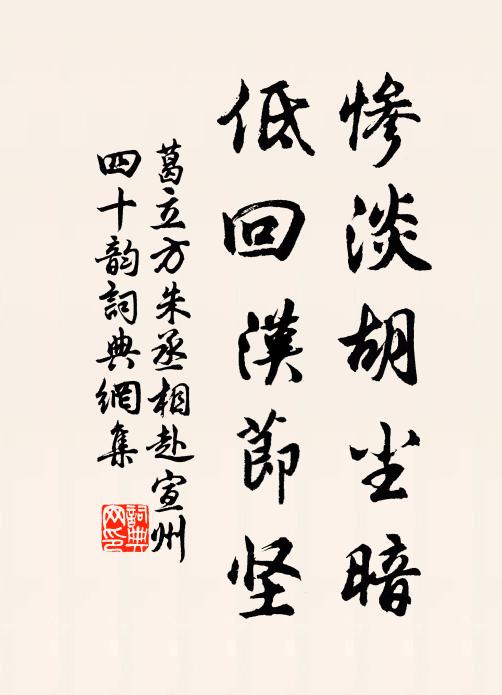 惨淡胡尘暗
低回漢節坚
葛立方朱丞相赴宣州
四十韵詞典網集
詞典
网印